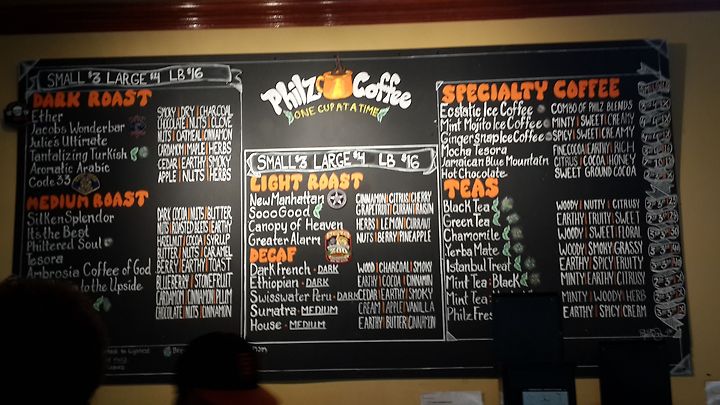 SMALL $3 LARGE $4 LB $16
DARK ROAST
Ether SMOKY|DRY|CHARCOAL
Jacobs Wonderbar CHOCOLATE|NUTS|CLOVE
Julie's Ultimate NUTS|OATMEAL|CINNAMON
Tantalizing Turkish CARDAMOM|MAPLE|HERBS
Aromatic Arabic CEDAR|EARTHY|SMOKY
Code 33 APPLE|NUTS|HERBS
MEDIUM ROAST
Silken Splendor DARK COCOA|NUTS|BUTTER
It's the Best NUTS|ROASTED BEETS|EARTHY
Philtered Soul HAZELNUT|COCOA|SYRUP
Tesora BUTTER|NUTS|CARAMEL
Ambrosia Coffee of God BERRY|EARTHY|TOAST
to the Upside BLUEBERRY|STONEFRUIT
CARDAMOM|CINNAMON|PLUM
CHOCOLATE|NUTS|CINNAMON
Philz Coffee
ONE CUP AT A TIME
SMALL $3 LARGE $4 LB $16
LIGHT ROAST
New Manhattan CINNAMON|CITRUS|CHERRY
SoooGood GRAPEFRUIT|CURRANT|RAISIN
Canopy of Heaven HERBS|LEMON|CURRANT
Greater Alarm NUTS|BERRY|PINEAPPLE
DECAF
Dark French - DARK WOOD|CHARCOAL|SMOKY
Ethiopian - DARK EARTHY|COCOA|CINNAMON
Swisswater Peru - DARK CEDAR|EARTHY|SMOKY
Sumatra - MEDIUM CREAM|APPLE|VANILLA
House - MEDIUM EARTHY|BUTTER|CINNAMON
SPECIALTY COFFEE
Ecstatic Ice Coffee COMBO OF PHILZ BLENDS
Mint Mojito Ice Coffee MINTY|SWEET|CREAMY
Gingersnap Ice Coffee SPICY|SWEET|CREAMY
Mocha Tesora FINE COCOA|EARTHY|RICH
Jamaican Blue Mountain CITRUS|COCOA|HONEY
Hot Chocolate SWEET GROUND COCOA
TEAS
Black Tea WOODY|NUTTY|CITRUSY
Green Tea EARTHY|FRUITY|SWEET
Chamomile WOODY|SWEET|FLORAL
Yerba Mate WOODY|SMOKY|GRASSY
Istanbul Treat EARTHY|SPICY|FRUITY
Mint Tea - Black MINTY|EARTHY|CITRUSY
Mint Tea MINTY|WOODY|HERB
Philz Fres EARTHY|SPICY|CREAM